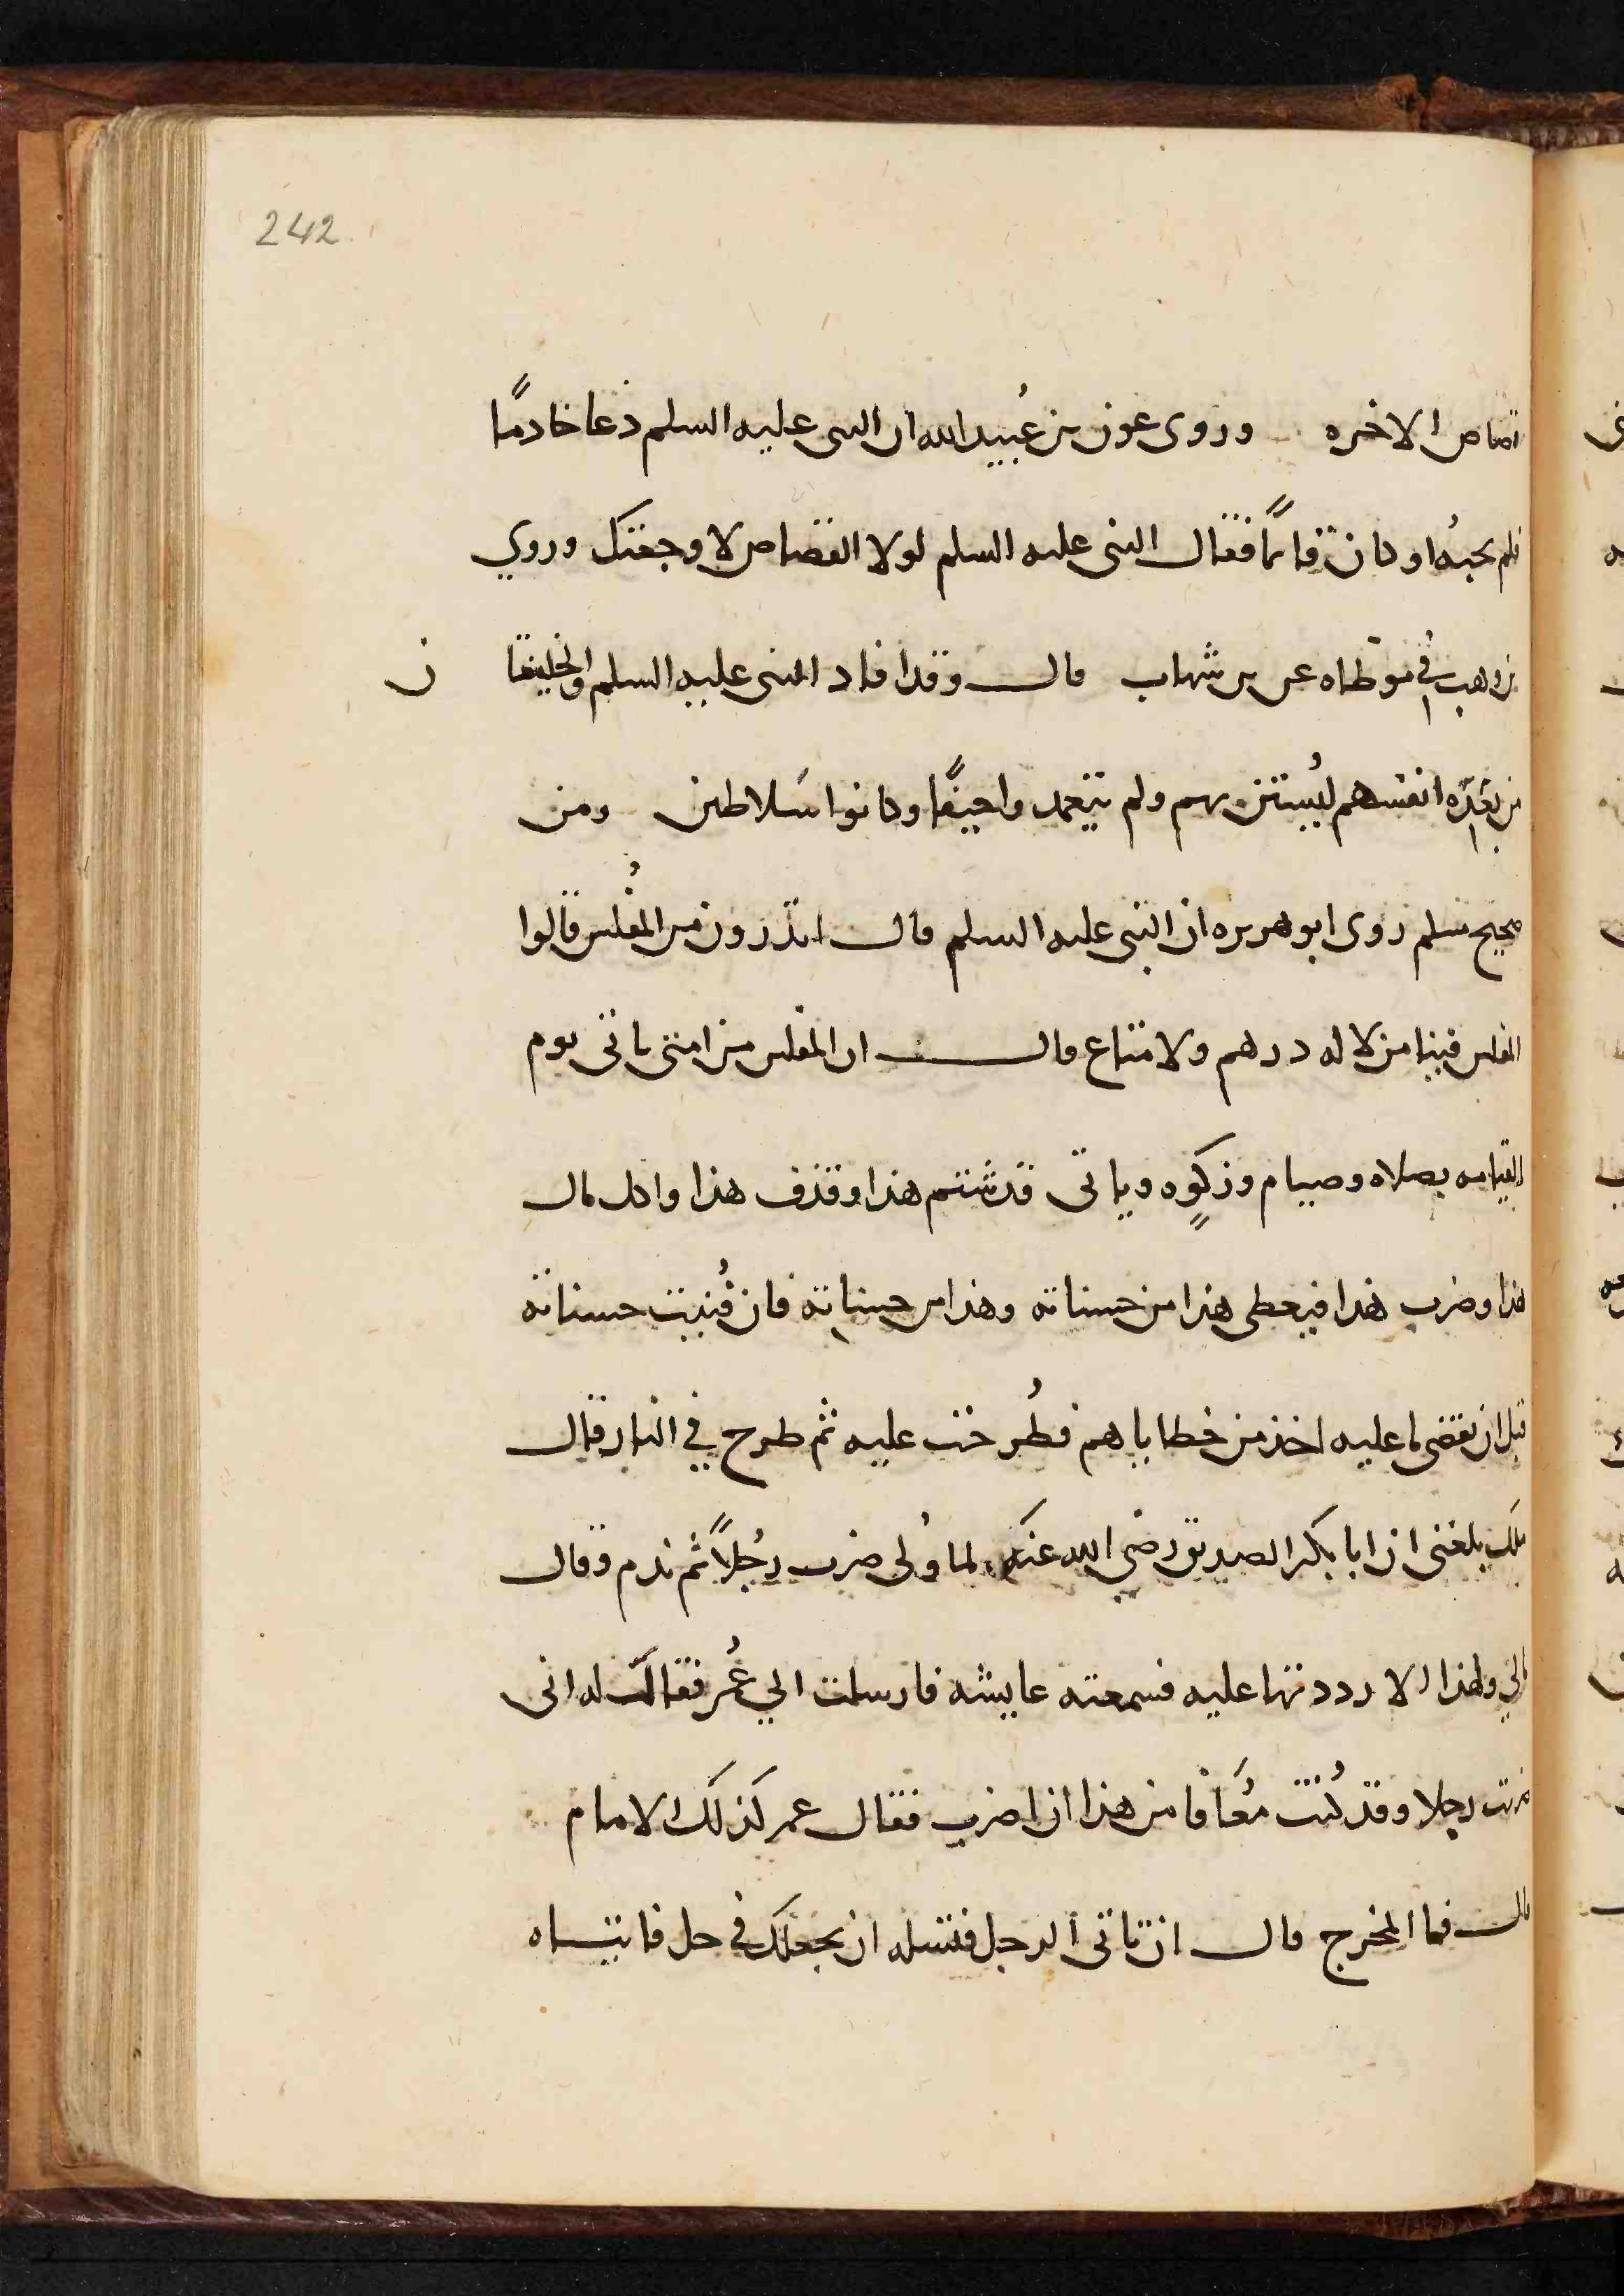 242
قصاص الاخره وروى عون بن عُبيد الله ان النبى عليه السلم دعا خادمًا
فلم يجبهُ او كان نائمًا فقال النبى عليه السلم لولا القصاص لاوجعتك وروي
بن وهب في موطاه عن بن شهاب قال وقد افاد النبى عليه السلم والخليفتا ن
من بعده انفسهم ليُستن بهم ولم يتعمد واحيفًا وكانوا سلاطين ومن
صحيح مسلم روى ابو هريره ان النبى عليه السلم قال اتدرون من المُفلس قالوا
المفلس فينا من لا له درهم ولا متاع قال ان المفلس من امتى ياتى يوم
القيامه بصلاه وصيام وزكوه وياتى قد شتم هذا وقذف هذا واكل مال
هذا وضرب هذا فيعطى هذا من حسناته وهذا من حسناته فان فُنيت حسناته
قبل ان يقضى ما عليه اخذ من خطاياهم فطُرحت عليه ثم طرح في النار قال
ملك بلغنى ان ابا بكر الصديق رضي الله عنه لما وُلى ضرب رجُلاً ثم ندم وقال
مالي ولهذا الا رددتها عليه فسمعته عايشه فارسلت الي عُمر فقالت له انى
ضربت رجلا وقد كُنت مُعافا من هذا ان اضرب فقال عمر كذلك الامام
قال فما المخرج قال ان تاتى الرجل فتسله ان يجعلك في حل فاتياه